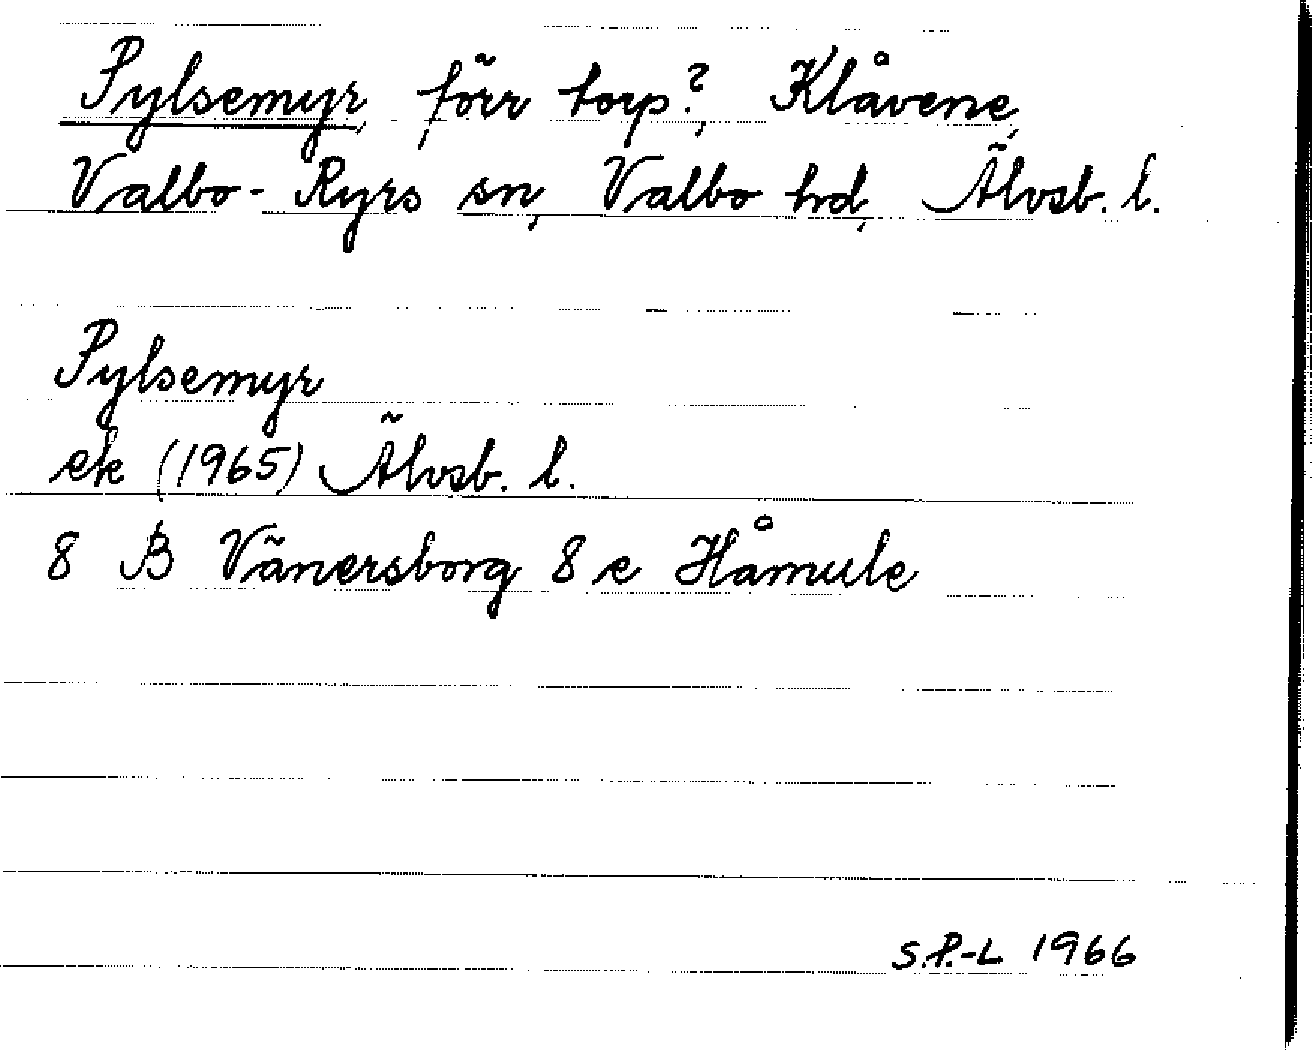 Pylsemyr, förr torp?, Klåvene,
Valbo-Ryrs sn, Valbo hd, Älvsb. l.
Pylsemyr
ek (1965) Älvsb. l.
8 B Vänersborg 8 e Håmule
S.P.-L 1966